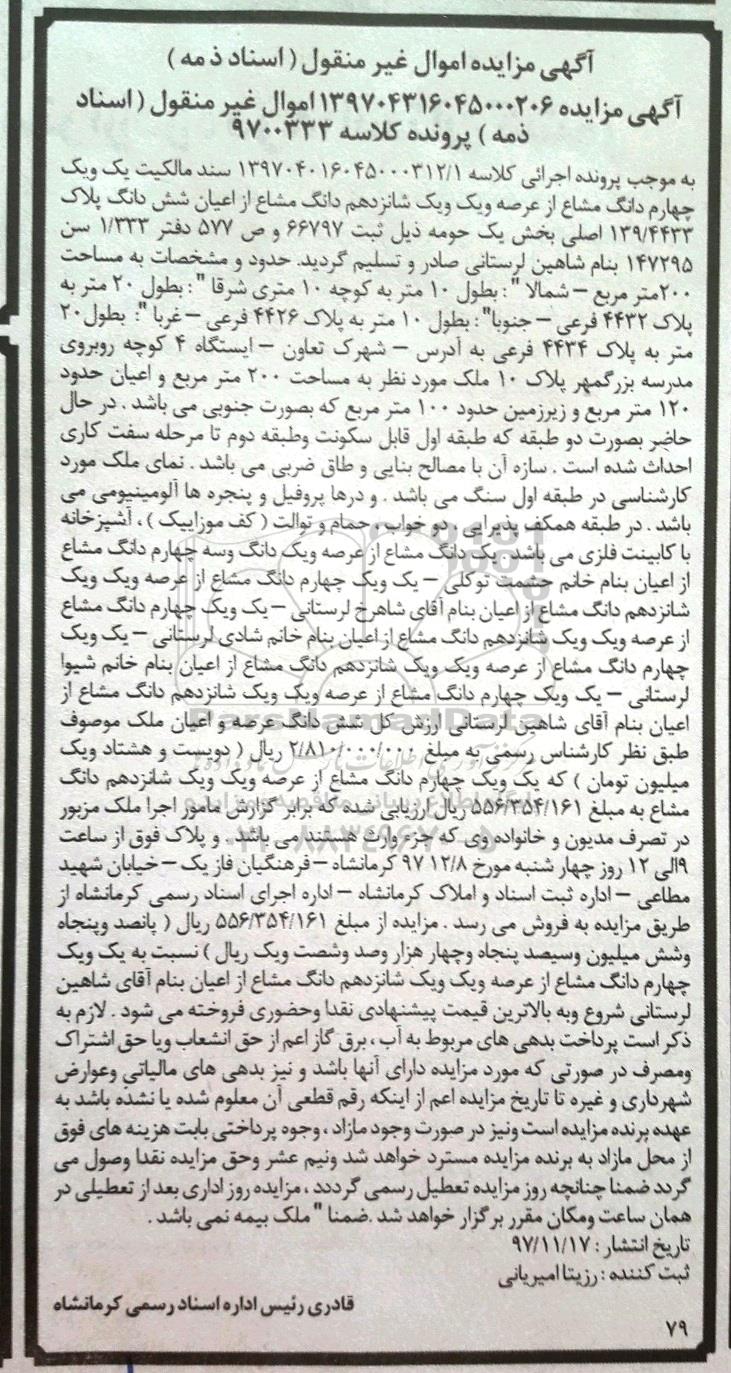 آگهی مزایده اموال غیر منقول ( اسناد ذمه )
آگهی مزایده ۱۳۹۷۰۴۳۱۶۰۴۵۰۰۰۲۰۶ اموال غیر منقول ( اسناد
ذمه ) پرونده کلاسه ۹۷۰۰۳۳۳
به موجب پرونده اجرائی کلاسه ۱۳۹۷۰۴۰۱۶۰۴۵۰۰۰۳۱۲/۱ سند مالکیت یک ویک
چهارم دانگ مشاع از عرصه ویک ویک شانزدهم دانگ مشاع از اعیان شش دانگ پلاک
۱۳۹/۴۴۳۳ اصلی بخش یک حومه ذیل ثبت ۶۶۷۹۷ و ص ۵۷۷ دفتر ۱/۳۳۳ سن
۱۴۷۲۹۵ بنام شاهین لرستانی صادر و تسلیم گردید. حدود و مشخصات به مساحت
۲۰۰متر مربع – شمالا " : بطول ۱۰ متر به کوچه ۱۰ متری شرقا " : بطول ۲۰ متر به
پلاک ۴۴۳۲ فرعی – جنوبا" : بطول ۱۰ متر به پلاک ۴۴۲۶ فرعی – غربا ": بطول۲۰
متر به پلاک ۴۴۳۴ فرعی به آدرس – شهرک تعاون – ایستگاه ۴ کوچه روبروی
مدرسه بزرگمهر پلاک ۱۰ ملک مورد نظر به مساحت ۲۰۰ متر مربع و اعیان حدود
۱۲۰ متر مربع و زیرزمین حدود ۱۰۰ متر مربع که بصورت جنوبی می باشد . در حال
حاضر بصورت دو طبقه که طبقه اول قابل سکونت وطبقه دوم تا مرحله سفت کاری
احداث شده است . سازه آن با مصالح بنایی و طاق ضربی می باشد . نمای ملک مورد
کارشناسی در طبقه اول سنگ می باشد . و درها پروفیل و پنجره ها آلومینیومی می
باشد . در طبقه همکف پذیرایی ، دو خواب ، حمام و توالت ( کف موزاییک ) ، آشپزخانه
با کابینت فلزی می باشد . یک دانگ مشاع از عرصه ویک دانگ وسه چهارم دانگ مشاع
از اعیان بنام خانم حشمت توکلی – یک ویک چهارم دانگ مشاع از عرصه ویک ویک
شانزدهم دانگ مشاع از اعیان بنام آقای شاهرخ لرستانی – یک ویک چهارم دانگ مشاع
از عرصه ویک ویک شانزدهم دانگ مشاع از اعیان بنام خانم شادی لرستانی – یک ویک
چهارم دانگ مشاع از عرصه ویک ویک شانزدهم دانگ مشاع از اعیان بنام خانم شیوا
لرستانی – یک ویک چهارم دانگ مشاع از عرصه ویک ویک شانزدهم دانگ مشاع از
ParsNamadData
اعیان بنام آقای شاهین لرستانی ارزش کل شش دانگ عرصه و اعیان ملک موصوف
طبق نظر کارشناس رسمی به مبلغ ۲/۸۱۰/۰۰۰/۰۰۰ ریال ( دویست و هشتاد ویک
میلیون تومان ) که یک ویک چهارم دانگ مشاع از عرصه ویک ویک شانزدهم دانگ
مشاع به مبلغ ۵۵۶/۳۵۴/۱۶۱ ریال ارزیابی شده که برابر گزارش مامور اجرا ملک مزبور
در تصرف مدیون و خانواده وی که جزء وارث هستند می باشد . و پلاک فوق از ساعت
۹الی ۱۲ روز چهار شنبه مورخ ۹۷ ۱۲/۸ کرمانشاه – فرهنگیان فاز یک – خیابان شهید
مطاعی – اداره ثبت اسناد و املاک کرمانشاه – اداره اجرای اسناد رسمی کرمانشاه از
طریق مزایده به فروش می رسد . مزایده از مبلغ ۵۵۶/۳۵۴/۱۶۱ ریال ( پانصد وپنجاه
وشش میلیون وسیصد پنجاه وچهار هزار وصد وشصت ویک ریال ) نسبت به یک ویک
چهارم دانگ مشاع از عرصه ویک ویک شانزدهم دانگ مشاع از اعیان بنام آقای شاهین
لرستانی شروع وبه بالاترین قیمت پیشنهادی نقدا وحضوری فروخته می شود . لازم به
ذکر است پرداخت بدهی های مربوط به آب ، برق گاز اعم از حق انشعاب ویا حق اشتراک
ومصرف در صورتی که مورد مزایده دارای آنها باشد و نیز بدهی های مالیاتی وعوارض
شهرداری و غیره تا تاریخ مزایده اعم از اینکه رقم قطعی آن معلوم شده یا نشده باشد به
عهده برنده مزایده است ونیز در صورت وجود مازاد ، وجوه پرداختی بابت هزینه های فوق
از محل مازاد به برنده مزایده مسترد خواهد شد ونیم عشر وحق مزایده نقدا وصول می
گردد ضمنا چنانچه روز مزایده تعطیل رسمی گرددد ، مزایده روز اداری بعد از تعطیلی در
همان ساعت ومکان مقرر برگزار خواهد شد .ضمنا " ملک بیمه نمی باشد .
تاریخ انتشار : ۹۷/۱۱/۱۷
ثبت کننده : رزیتا امیریانی
قادری رئیس اداره اسناد رسمی کرمانشاه
۷۹